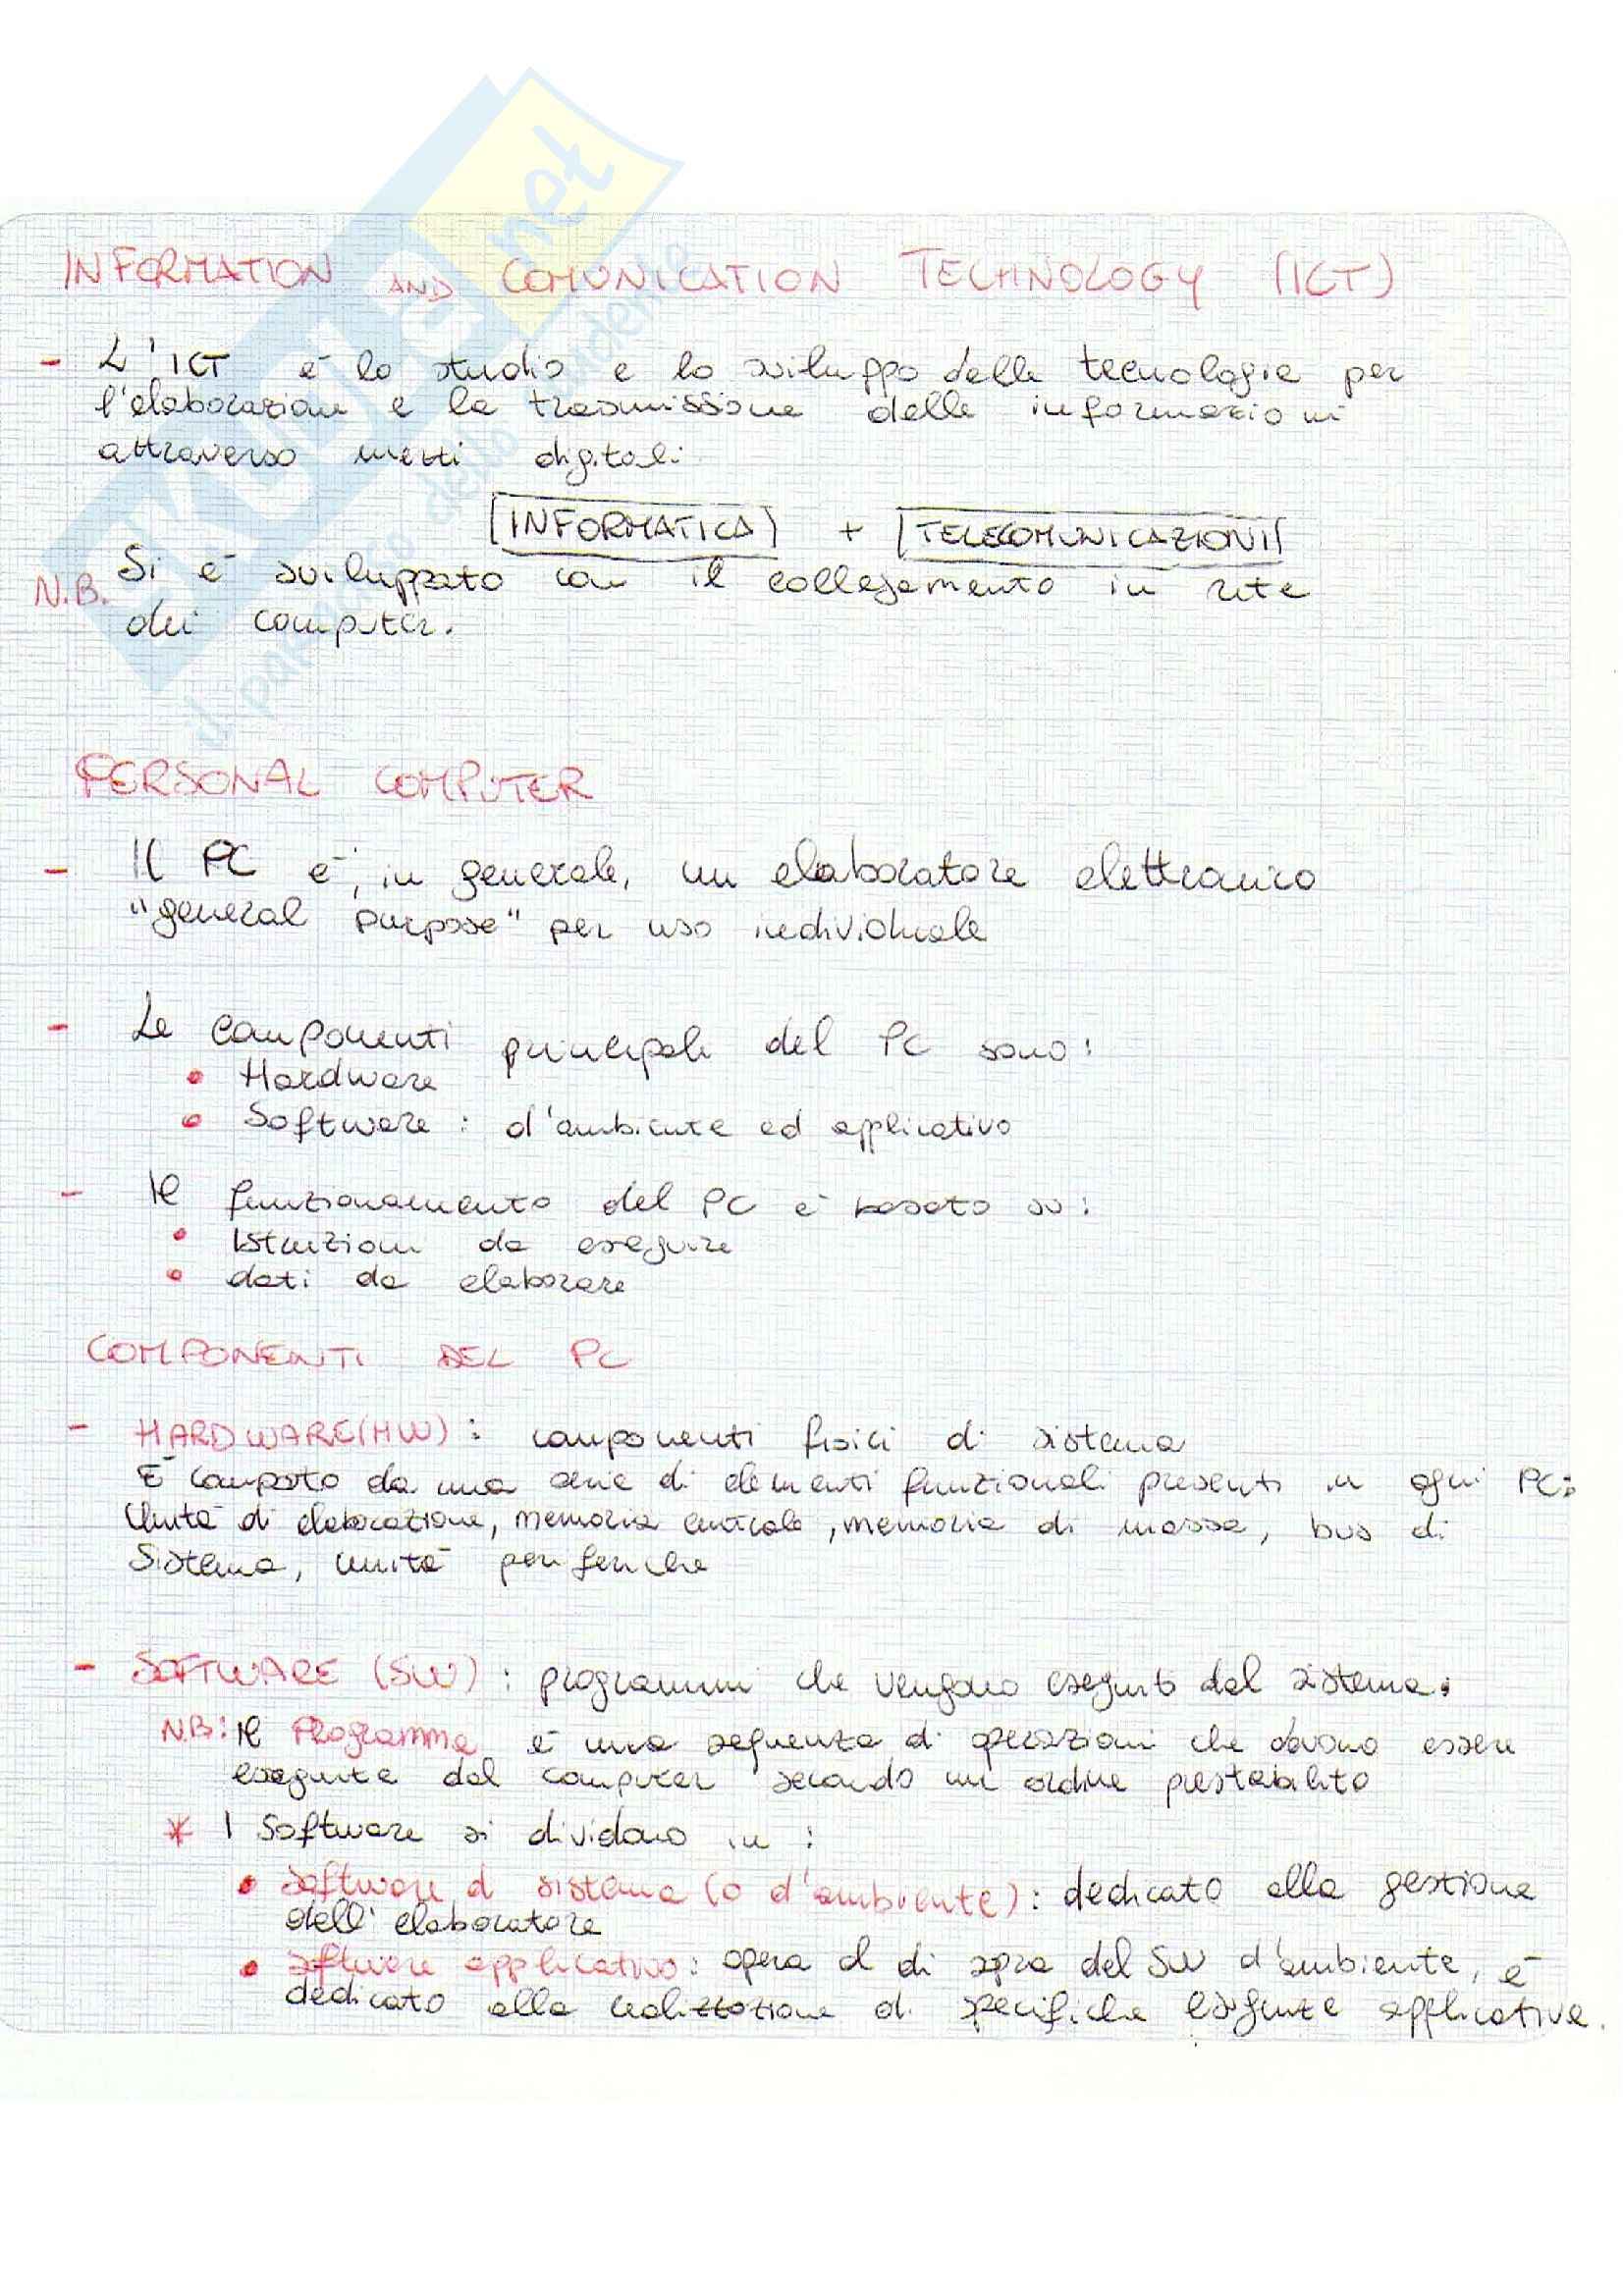 INFORMATION AND COMUNICATION TECHNOLOGY (ICT)
- L'ICT è lo studio e lo sviluppo delle tecnologie per
l'elaborazione e la trasmissione delle informazioni
attraverso mezzi digitali
INFORMATICA + TELECOMUNICAZIONI
N.B. Si è sviluppato con il collegamento in rete
dei computer.
PERSONAL COMPUTER
- Il PC è, in generale, un elaboratore elettronico
"general purpose" per uso individuale
- Le componenti principali del PC sono:
• Hardware
• Software : d'ambiente ed applicativo
- Il funzionamento del PC è basato su:
• Istruzioni da eseguire
• dati da elaborare
COMPONENTI DEL PC
- HARDWARE (HW) : componenti fisici di sistema
È composto da una serie di elementi funzionali presenti in ogni PC:
Unità di elaborazione, memoria centrale, memoria di massa, bus di
Sistema, unità periferiche
- SOFTWARE (SW) : programmi che vengono eseguiti dal sistema.
N.B: Il Programma è una sequenza di operazioni che devono essere
eseguite dal computer secondo un ordine prestabilito
* I Software si dividono in :
• Software di sistema (o d'ambiente) : dedicato alla gestione
dell'elaboratore
• software applicativo : opera al di sopra del SW d'ambiente, è
dedicato alla realizzazione di specifiche esigenze applicative.
SKUOLA.net
il paradiso dello studente